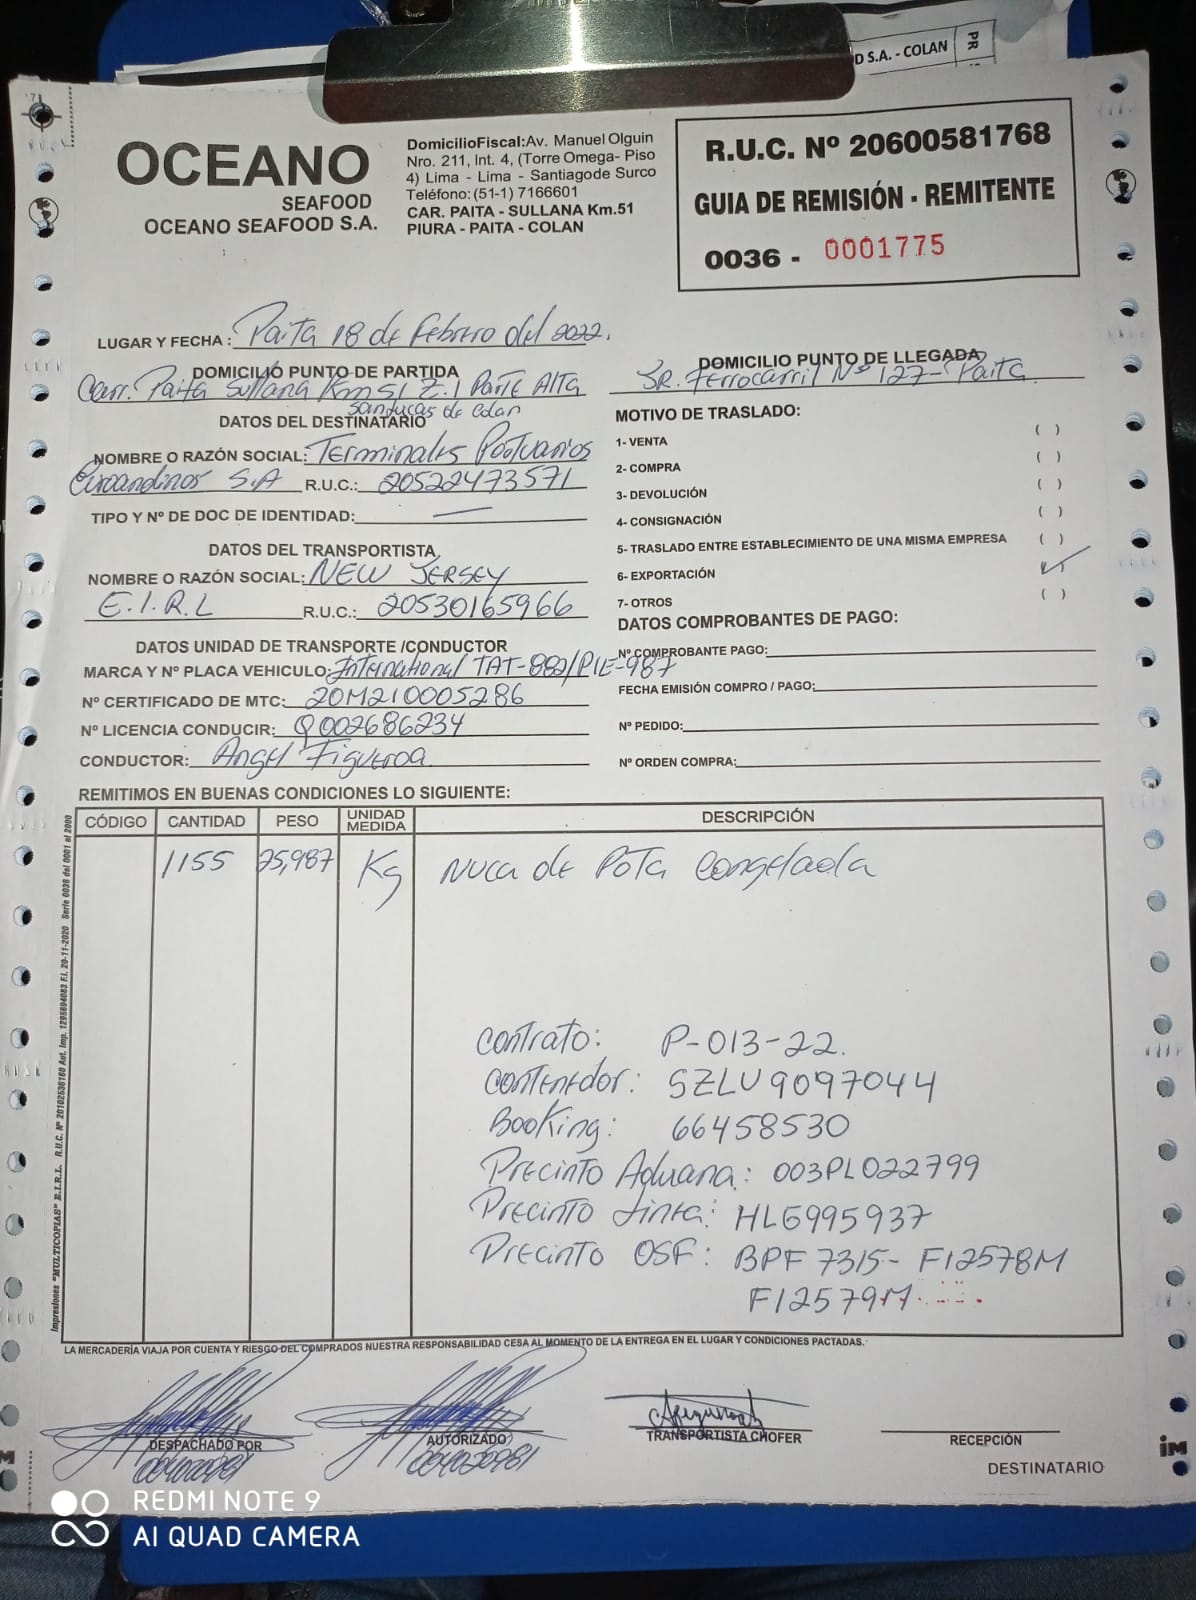 D S.A. - COLAN
PR
OCEANO
SEAFOOD
OCEANO SEAFOOD S.A.
DomicilioFiscal:Av. Manuel Olguin
Nro. 211, Int. 4, (Torre Omega- Piso
4) Lima - Lima - Santiagode Surco
Teléfono: (51-1) 7166601
CAR. PAITA - SULLANA Km.51
PIURA - PAITA - COLAN
R.U.C. Nº 20600581768
GUIA DE REMISIÓN - REMITENTE
0036 - 0001775
LUGAR Y FECHA : Paita 18 de Febrero del 2022.
DOMICILIO PUNTO DE PARTIDA
Carr. Paita Sullana Km 51 Z.I Parte Alta
Sanducas de Colan
DOMICILIO PUNTO DE LLEGADA
JR. Ferrocarril Nº 127- Paita
DATOS DEL DESTINATARIO
NOMBRE O RAZÓN SOCIAL: Terminales Portuarios
Euroandinos S.A R.U.C.: 20522473571
TIPO Y Nº DE DOC DE IDENTIDAD: —
DATOS DEL TRANSPORTISTA
NOMBRE O RAZÓN SOCIAL: NEW JERSEY
E.I.R.L R.U.C.: 20530165966
DATOS UNIDAD DE TRANSPORTE /CONDUCTOR
MARCA Y Nº PLACA VEHICULO: International TAT-882/PIE-987
Nº CERTIFICADO DE MTC: 20M210005286
Nº LICENCIA CONDUCIR: Q002686234
CONDUCTOR: Angel Figueroa
MOTIVO DE TRASLADO:
1- VENTA ( )
2- COMPRA ( )
3- DEVOLUCIÓN ( )
4- CONSIGNACIÓN ( )
5- TRASLADO ENTRE ESTABLECIMIENTO DE UNA MISMA EMPRESA ( )
6- EXPORTACIÓN ✓
7- OTROS ( )
DATOS COMPROBANTES DE PAGO:
Nº COMPROBANTE PAGO:
FECHA EMISIÓN COMPRO / PAGO:
Nº PEDIDO:
Nº ORDEN COMPRA:
REMITIMOS EN BUENAS CONDICIONES LO SIGUIENTE:
CÓDIGO CANTIDAD PESO UNIDAD MEDIDA DESCRIPCIÓN
1155 25,987 Kg Nuca de Pota Congelada
Contrato: P-013-22.
Contenedor: SZLU9097044
Booking: 66458530
Precinto Aduana: 003PL022799
Precinto Linea: HLG995937
Precinto OSF: BPF 7315- F12578M
F12579M
Impresiones "MULTICOPIAS" E.I.R.L. R.U.C. Nº 20102536160 Aut. Imp. 1295694083 F.I. 20-11-2020 Serie 0036 del 0001 al 2000
LA MERCADERÍA VIAJA POR CUENTA Y RIESGO DEL COMPRADOS NUESTRA RESPONSABILIDAD CESA AL MOMENTO DE LA ENTREGA EN EL LUGAR Y CONDICIONES PACTADAS.
DESPACHADO POR
AUTORIZADO
TRANSPORTISTA CHOFER
RECEPCIÓN
DESTINATARIO
iM
REDMI NOTE 9
AI QUAD CAMERA